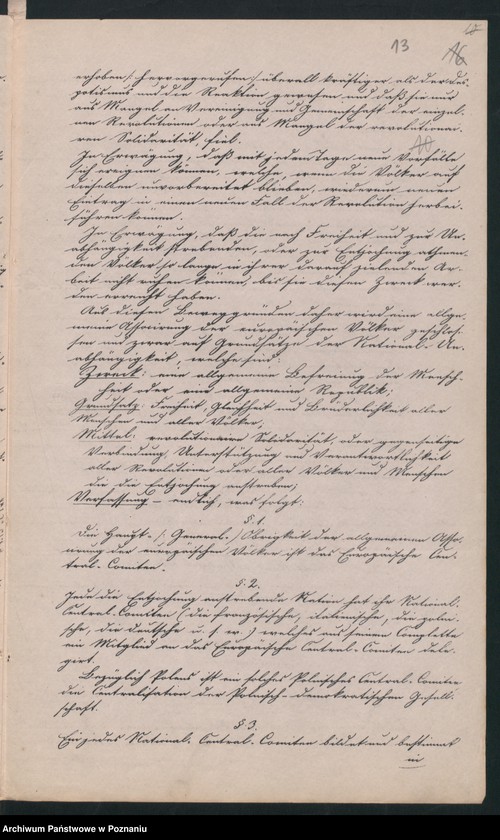 13
erhoben /: hervorgerufen :/ überall kräftiger als der Des-
potismus und die Reaktion gewesen und daß sie nur
aus Mangel an Vereinigung und Gemeinschaft der einzel-
nen Revolutionen oder aus Mangel der revolutionai-
ren Solidarität, fiel.
In Erwägung, daß mit jedem Tage neue Vorfälle
sich ereignen können, welche, wenn die Völker auf
dieselben unvorbereitet bleiben, wiederum neuen
Eintrag in einen neuen Fall der Revolution herbei-
führen können.
In Erwägung, daß die nach Freiheit und zur Un-
abhängigkeit strebenden, oder zur Entjochung
den Völker so lange in ihrer darauf zielenden Ar-
beit nicht ruhen können, bis sie diesen Zweck wer-
den erreicht haben.
Aus diesen Beweggründen daher wird eine allge-
meine Associrung der europäischen Völker geschlos-
sen und zwar auf Grundsätze der National-Un-
abhängigkeit, welche sind:
Zweck: eine allgemeine Befreiung der Mensch-
heit oder eine allgemeine Republik;
Grundsatz: Freiheit, Gleichheit und Brüderlichkeit aller
Menschen und aller Völker,
Mittel: revolutionaire Solidarität, oder gegenseitige
Verbindung, Unterstützung und Verantwortlichkeit
aller Revolutionen oder aller Völker und Menschen
die die Entjochung anstreben;
Verfassung – endlich, was folgt:
§ 1.
Die Haupt- /: General- :/ Obrigkeit der allgemeinen Asso-
cirung der europäischen Völker ist das Europäische Cen-
tral-Comitee.
§. 2.
Jede die Entjochung anstrebende Nation hat ihr National-
Central-Comitee (die französische, italienische, die polni-
sche, die deutsche u. s. w.) welches aus seinem Complette
ein Mitglied an das Europäische Central-Comitee dele-
girt.
Bezüglich Polens ist ein solches Polnisches Central-Comitee
die Centralisation der Polnisch-demokratischen Gesell-
schaft.
§ 3.
Ein jedes National-Central-Comitee bildet und bestimmt
in
Archiwum Państwowe w Poznaniu